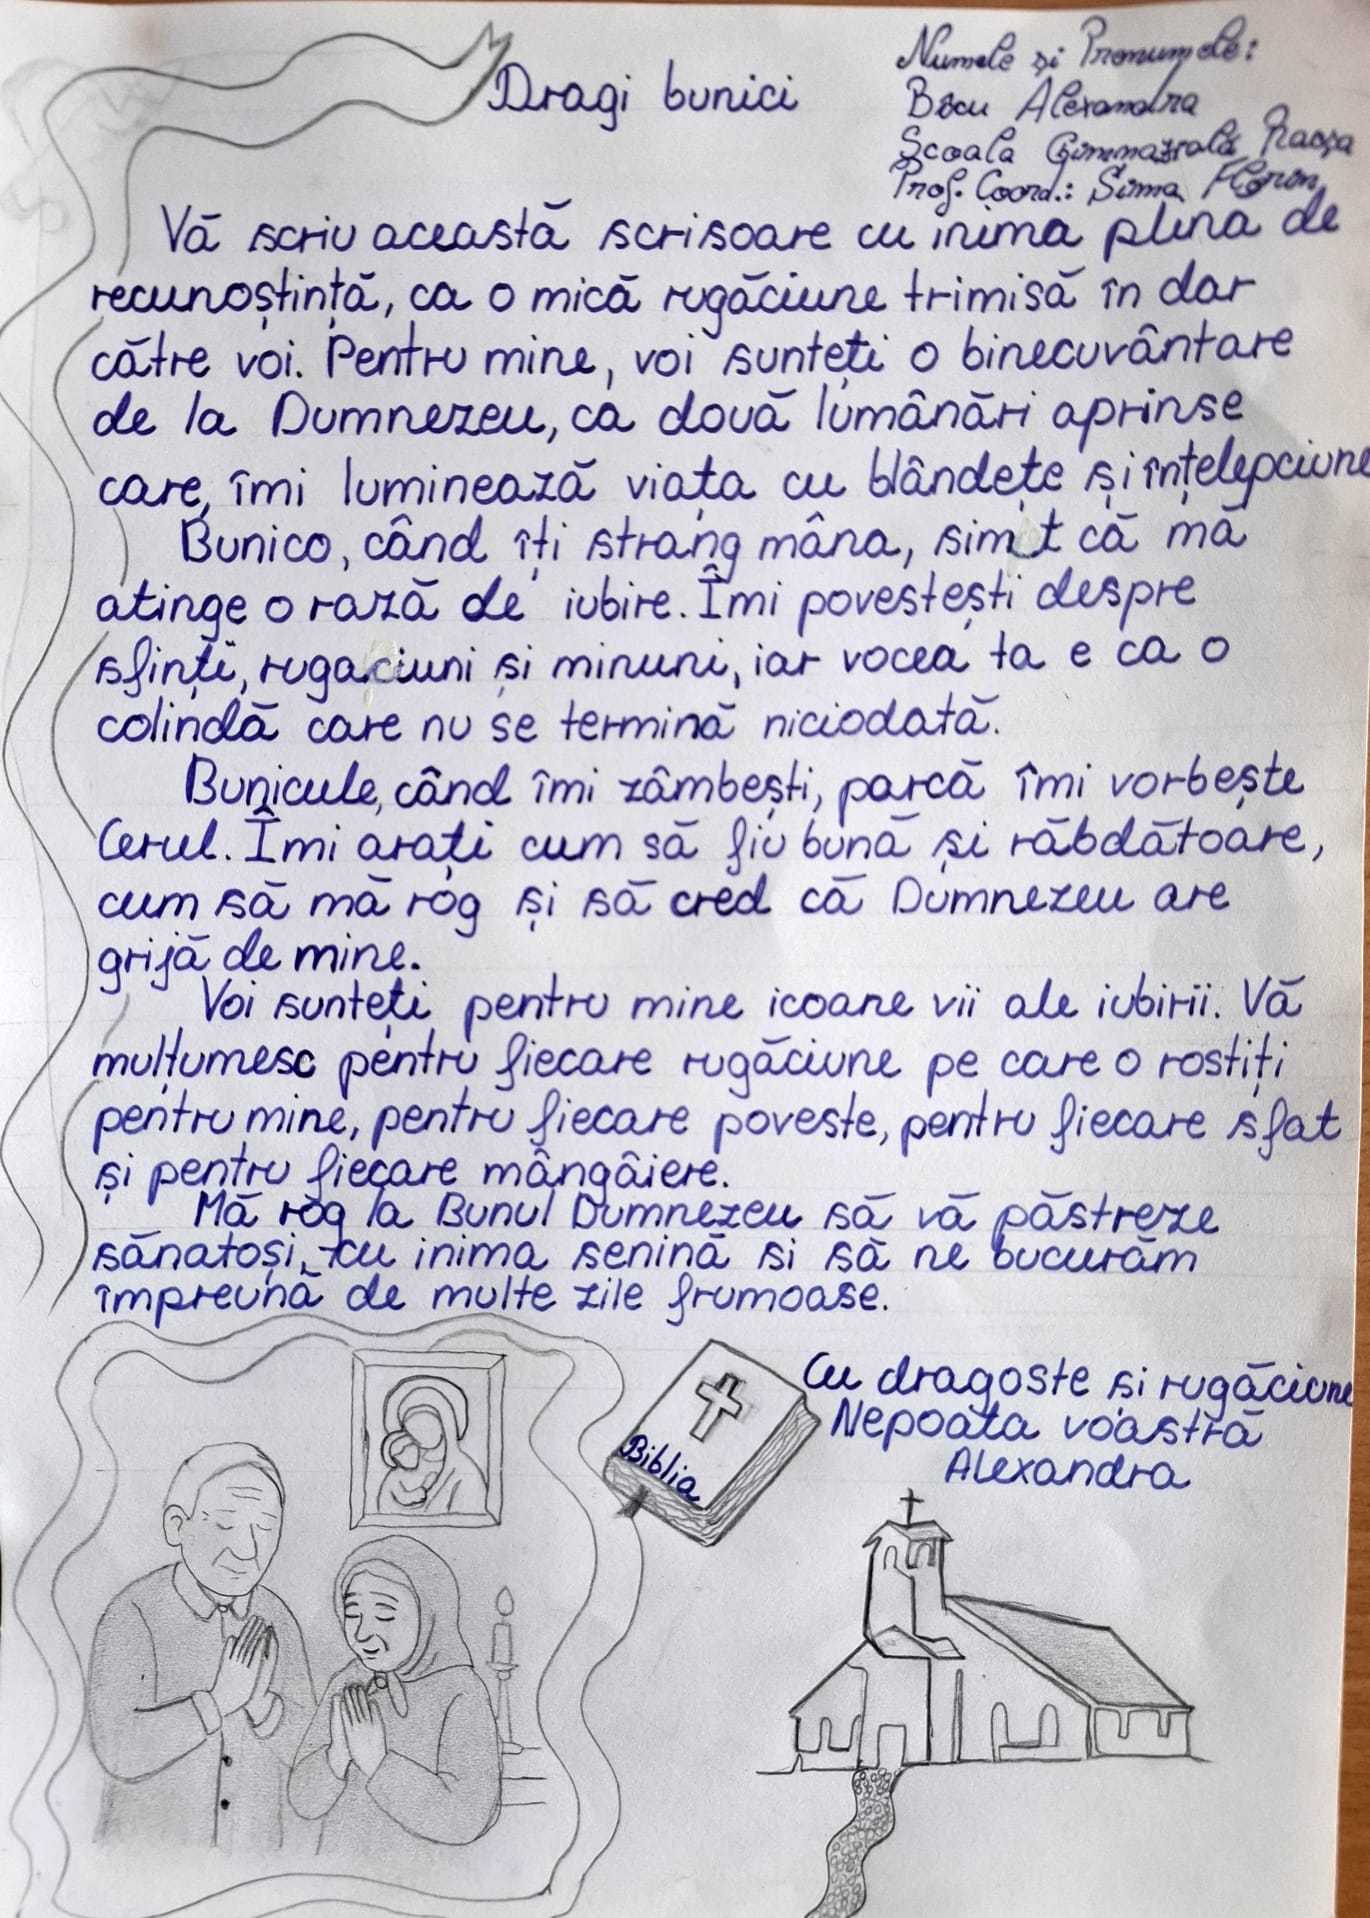 Dragi bunici
Numele și Pronumele:
Bîcu Alexandra
Școala Gimnazială
Prof. Coord.: Sima Florin
Vă scriu această scrisoare cu inima plina de
recunoștință, ca o mică rugăciune trimisă în dar
către voi. Pentru mine, voi sunteți o binecuvântare
de la Dumnezeu, ca două lumânări aprinse
care, îmi luminează viața cu blândețe și înțelepciune
Bunico, când îți strang mâna, simt că mă
atinge o rază de iubire. Îmi povestești despre
sfinți, rugaciuni și minuni, iar vocea ta e ca o
colindă care nu se termină niciodată.
Bunicule, când îmi zâmbești, parcă îmi vorbește
Cerul. Îmi arați cum să fiu bună și răbdătoare,
cum să mă rog și să cred că Dumnezeu are
grijă de mine.
Voi sunteți pentru mine icoane vii ale iubirii. Vă
mulțumesc pentru fiecare rugăciune pe care o rostiți
pentru mine, pentru fiecare poveste, pentru fiecare sfat
și pentru fiecare mângâiere.
Mă rog la Bunul Dumnezeu să vă păstreze
sănatoși, cu inima senină si să ne bucurăm
împreună de multe zile frumoase.
Cu dragoste și rugăciune
Nepoata voastră
Alexandra
Biblia